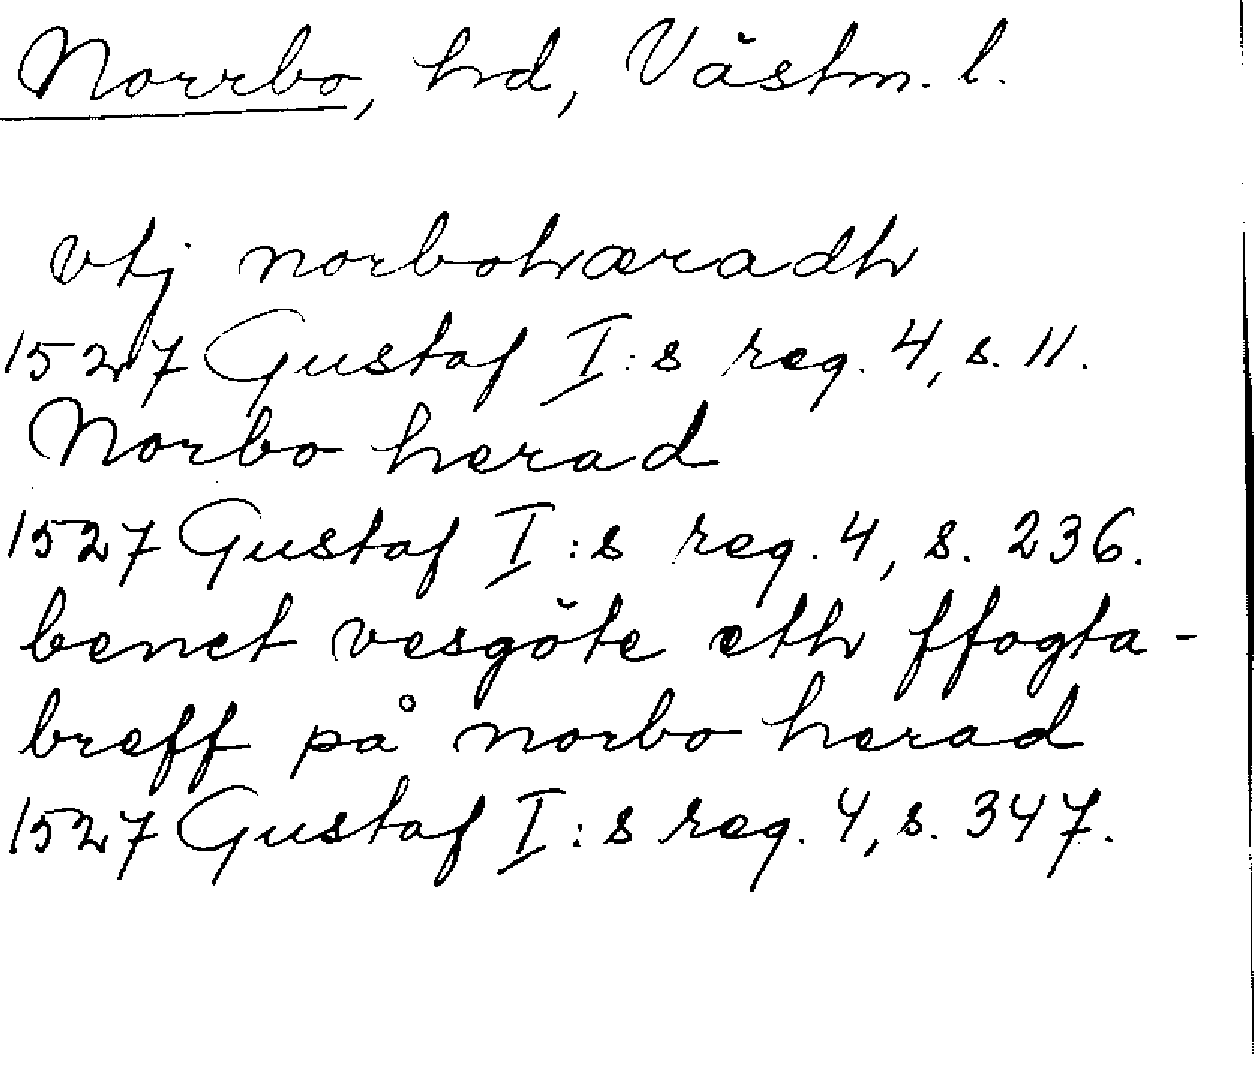 Norrbo, hd, Västm. l.
vtj norbohæradh
1527 Gustaf I:s reg. 4, s. 11.
Norbo herad
1527 Gustaf I:s reg. 4, s. 236.
benct vesgöte eth ffogta-
breff på norbo herad
1527 Gustaf I:s reg. 4, s. 347.